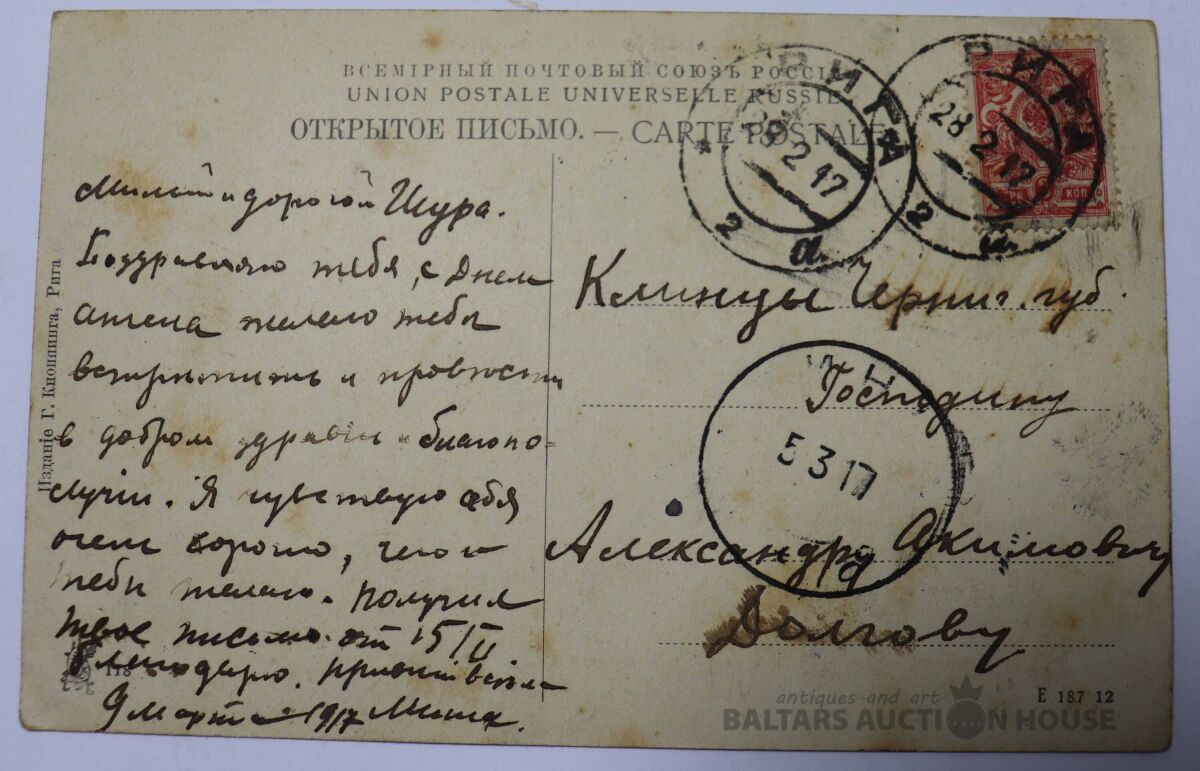 ВСЕМІРНЫЙ ПОЧТОВЫЙ СОЮЗЪ РОССІЯ
UNION POSTALE UNIVERSELLE RUSSIE
ОТКРЫТОЕ ПИСЬМО. — CARTE POSTALE
РИГА
28 2 17
2 а.
РИГА
28 2 17
2 а.
Милый и дорогой Шура.
Поздравляю тебя, с Днем
ангела желаю тебя
встретить и провести
в добром здравіи и благопо-
лучіи. Я чувствую себя
очень хорошо, чего и
тебе желаю. получил
твое письмо от 15/II
благодарю. привет всем
9 марта 1917 Миша.
Клинцы Черниг. губ.
Господину
Александру Акимовичу
Долгову
5 3 17
Изданіе Г. Кноппинга, Рига
118
E 187 12
antiques and art
BALTARS AUCTION HOUSE